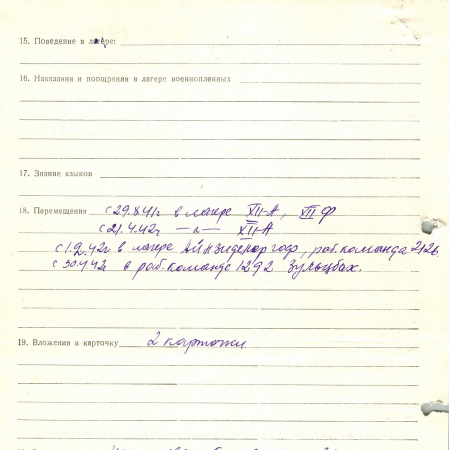 15. Поведение в лагере:
16. Наказания и поощрения в лагере военнопленных
17. Знание языков
18. Перемещения с 29.X.41г в лагере XII-А, XII Ф
с 21.4.42г —"— XII-А
с 1.2.42г. в лагере, раб. команда 2126.
с 30.4.42г в раб. команде 1292 Зульцбах.
19. Вложения в карточку 2 карточки